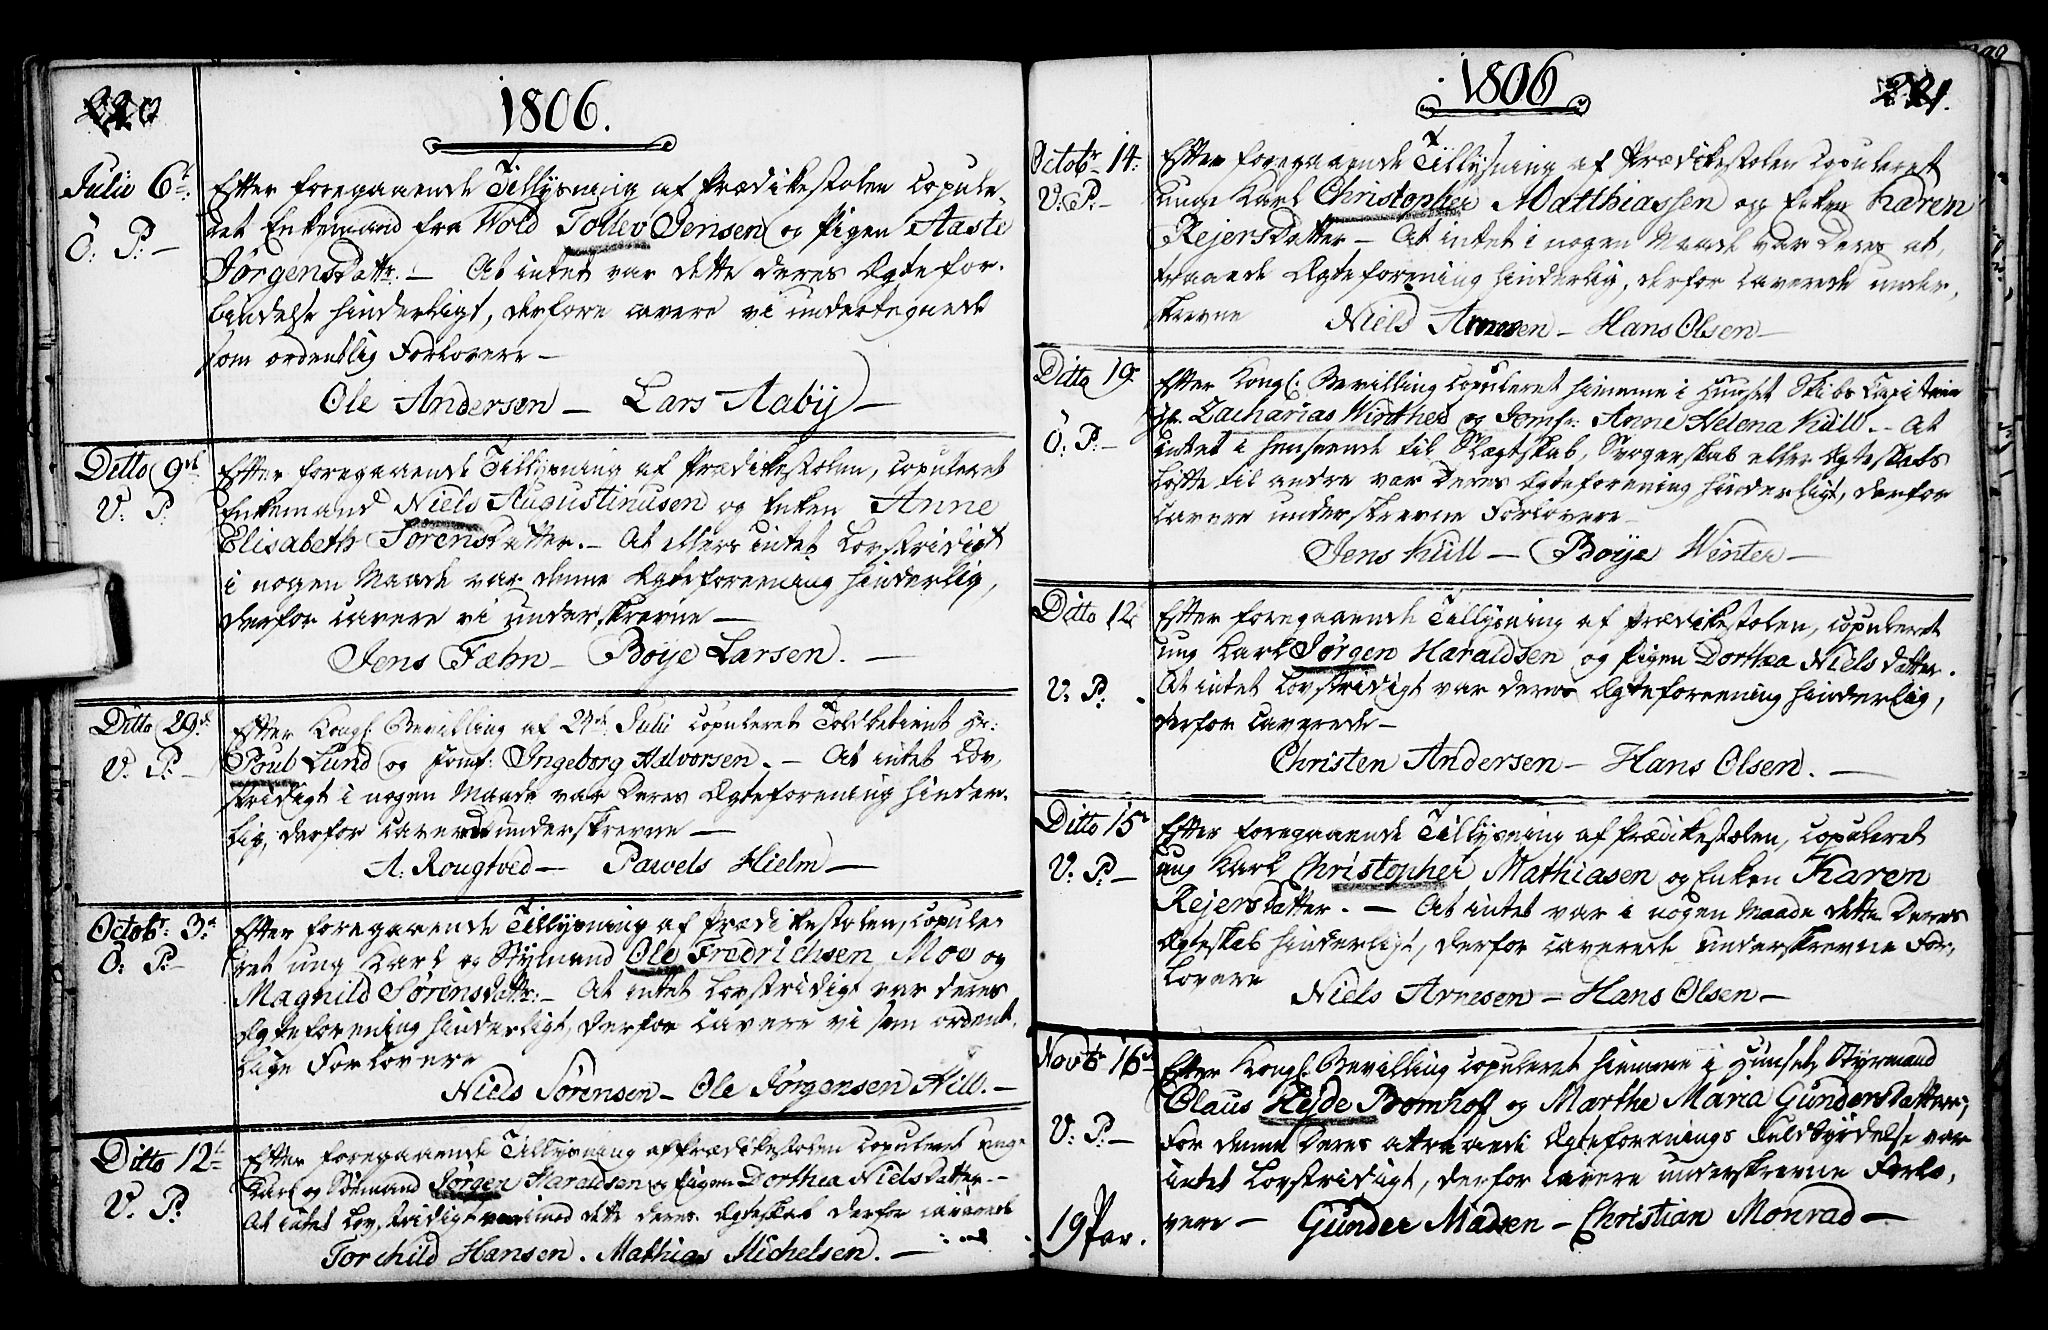 220
1806.
Julii 6te
Ö: P:–
Efter foregaaende Tillysning af Prædikestolen copule-
ret Enkemand fra Wold Tollev Jensen og Pigen Aaste
JørgensDattr. – At intet var dette deres Ægtefor-
bindelse hinderligt, derfore cavere vi undertegnede
som ordentlig Forlovere –
Ole Andersen – Lars Aabÿ –
Ditto 9de
V: P:
Efter foregaaende Tillysning af Prædikestolen, copuleret
Enkemand Niels Augustinusen og Enken Anne
Elisabeth SørensDatter. – At ellers intet Lovstridigt
i nogen Maade var denne Ægteforening hinderlig,
derfor cavere vi underskrevne –
Jens Fæhn – Boÿe Larsen. –
Ditto 29de
V: P: –
Efter Kongl: Bevilling af 24de Julii copuleret Toldbetient Hr:
Poul Lund og Jomf: Ingeborg Halvorsen. – At intet Lov-
stridigt i nogen Maade var deres Ægteforening hinder-
lig, derfor caverede underskrevne –
A: Rougtved – Pawels Hielm –
Octobr: 3de
Ö: P:–
Efter foregaaende Tillysning af Prædikestolen, copule-
ret ung Karl og Stÿrmand Ole Fredrichsen Moe og
Magnild SørensDattr: – At intet Lovstridigt var deres
Ægteforening hinderligt, derfor cavere vi som ordent-
lige Forlovere
Niels Sørensen – Ole Jørgensen Hill. –
Ditto 12te
V: P:
Efter foregaaende Tillysning af Prædikestolen copuleret unge
Karl og Sömand Jørgen Haraldsen og Pigen Dorthea NielsDatter –
At intet Lovstridigt var imod dette deres Ægteskab derfor caverede
Torchild Hansen. Mathias Michelsen. –
1806
221.
Octobr 14:
V: P:–
Efter foregaaende Tillysning af Prædikestolen copuleret
unge Karl Christopher Matthiassen og Enken Karen
RejersDatter – At intet i nogen Maade var deres at-
traaede Ægteforening hinderlig, derfor caverede under-
skrevne Niels Arnesen – Hans Olsen –
Ditto 19de
Ö: P:–
Efter Kongl: Bevilling copuleret hiemme i Huuset Skibs Capitain
Hr. Zacharias Winther og Jomfr: Anne Helena Küll. – At
intet i henseende til Slægtskab, Svogerskab eller Ægteskabs
Løfte til andre var deres Ægteforening hinderligt, derfor
cavere underskrevne Forlovere
Jens Küll – Boÿe Winter –
Ditto 12te
V: P:
Efter foregaaende Tillysning af Prædikestolen, copuleret
ung Karl Jørgen Haraldsen og Pigen Dorthea NielsDatter.
At intet Lovstridigt var deres Ægteforening hinderlig,
derfor caverede –
Christen Andersen – Hans Olsen. –
Ditto 15de
V: P:–
Efter foregaaende Tillysning af Prædikestolen, copuleret
ung Karl Christopher Mathiasen og Enken Karen
RejersDatter. – At intet var i nogen Maade dette deres
Ægteskab hinderligt, derfor caverede underskrevne For-
lovere
Niels Arnesen – Hans Olsen –
Novbr 16de
V: P:–
Efter Kongl: Bevilling copuleret hiemme i Huuset, Styrmand
Claus Heÿde Bomhoff og Marthe Maria GundersDatter;
For denne deres attraaede Ægteforenings Fuldbyrdelse var
intet Lovstridigt, derfor cavere underskrevne Forlo-
vere – Gunder Madsen – Christian Monrad –
19 Par.